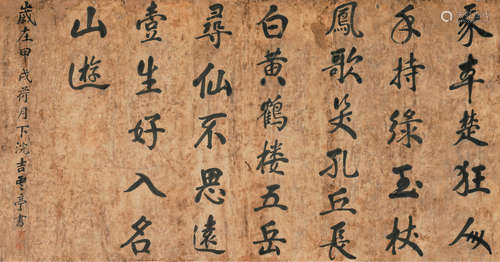 楚狂
手持綠玉杖
鳳歌笑孔丘長
白黄鶴楼五岳
尋仙不思遠
壹生好入名
山遊
歲在甲戌荷月下浣吉雲亭書